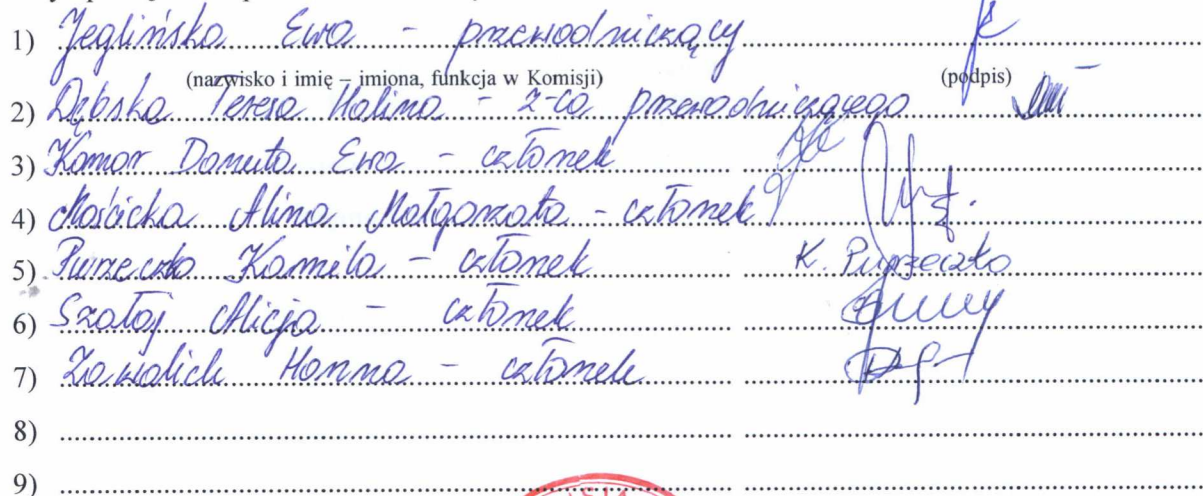 1) Jeglińska Ewa - przewodniczący
(nazwisko i imię – imiona, funkcja w Komisji) (podpis)
2) Dębska Teresa Halina - z-ca przewodniczącego
3) Komor Danuta Ewa - członek
4) Mościcka Alina Małgorzata - członek
5) Purzeczko Kamila - członek K. Purzeczko
6) Szałaj Alicja - członek
7) Zawalich Hanna - członek
8)
9)